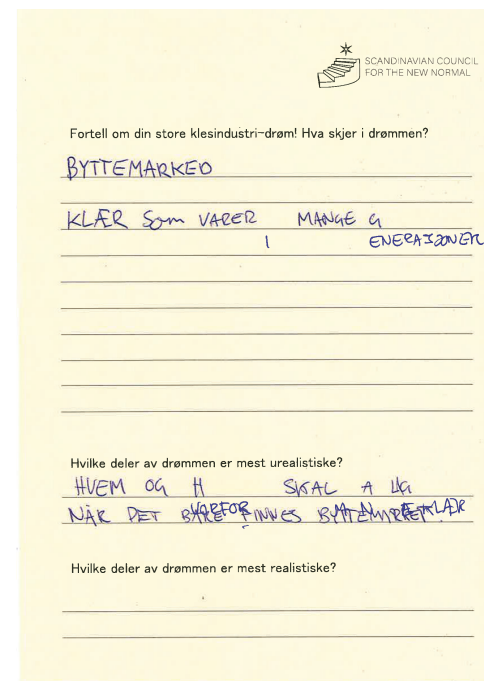 SCANDINAVIAN COUNCIL
FOR THE NEW NORMAL
Fortell om din store klesindustri-drøm! Hva skjer i drømmen?
BYTTEMARKED
KLÆR Som VARER I MANGE GENERASJONER
Hvilke deler av drømmen er mest urealistiske?
HVEM OG HVORFOR SKAL KLÆR
NÅR DET BARE FINNES BYTTEMARKED
Hvilke deler av drømmen er mest realistiske?